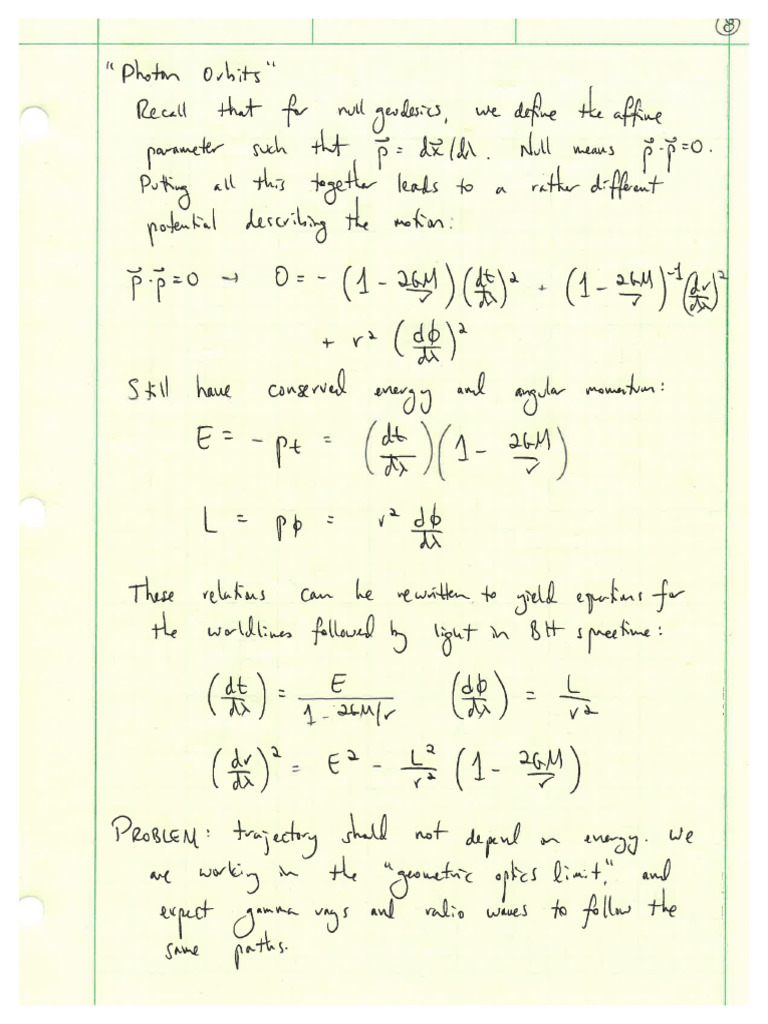 8
"Photon Orbits"
Recall that for null geodesics, we define the affine
parameter such tht p⃗ = dx⃗/dλ. Null means p⃗·p⃗=0.
Putting all this together leads to a rather different
potential describing the motion:
p⃗·p⃗=0 → 0 = - (1 - 2GM/r)(dt/dλ)² + (1 - 2GM/r)⁻¹(dr/dλ)²
+ r² (dϕ/dλ)²
Still have conserved energy and angular momentum:
E = - pt = (dt/dλ)(1 - 2GM/r)
L = pϕ = r² dϕ/dλ
These relations can be rewritten to yield equations for
the worldlines followed by light in BH spacetime:
(dt/dλ) = E/(1 - 2GM/r) (dϕ/dλ) = L/r²
(dr/dλ)² = E² - L²/r² (1 - 2GM/r)
PROBLEM: trajectory should not depend on energy. We
are working in the "geometric optics limit," and
expect gamma rays and radio waves to follow the
same paths.